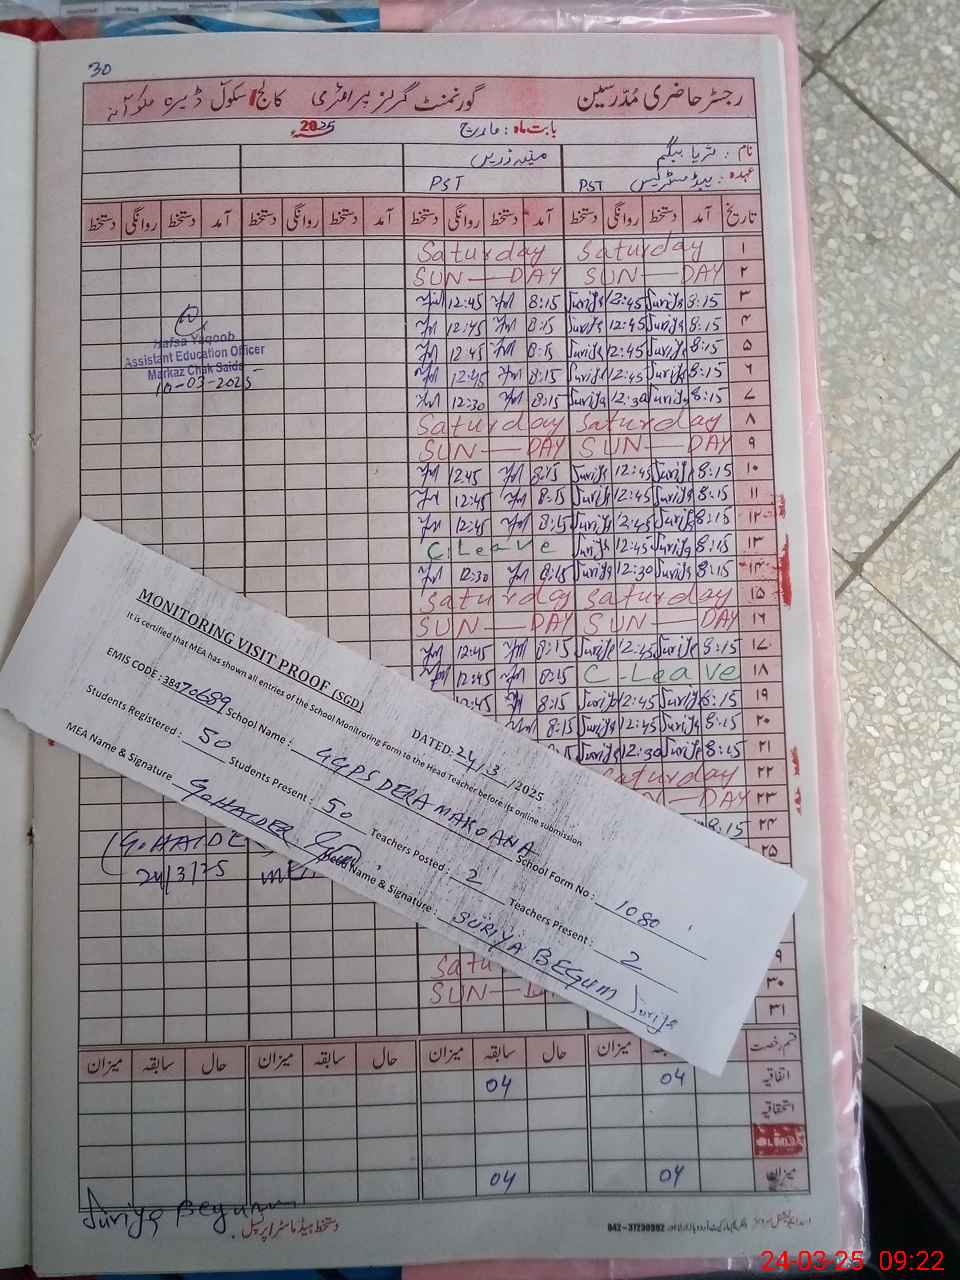 30
رجسٹر حاضری مُدّرسین گورنمنٹ گرلز پرائمری سکول / کالج ڈیرہ مکوآنہ
بابت ماہ : مارچ 2025
نام : ثریا بیگم
عہدہ : ہیڈ مسٹریس PST PST
تاریخ آمد دستخط روانگی دستخط آمد دستخط روانگی دستخط آمد دستخط روانگی دستخط آمد دستخط روانگی دستخط
۱ Saturday Saturday
۲ SUN — DAY SUN — DAY
۳ 8:15 Suriya 12:45 Suriya 8:15 12:45
۴ 8:15 Suriya 12:45 Suriya 8:15 12:45
۵ 8:15 Suriya 12:45 Suriya 8:15 12:45
۶ 8:15 Suriya 12:45 Suriya 8:15 12:45
۷ 8:15 Suriya 12:30 Suriya 8:15 12:30
۸ Saturday Saturday
۹ SUN — DAY SUN — DAY
۱۰ 8:15 Suriya 12:45 Suriya 8:15 12:45
۱۱ 8:15 Suriya 12:45 Suriya 8:15 12:45
۱۲ 8:15 Suriya 12:45 Suriya 8:15 12:45
۱۳ 8:15 Suriya 12:45 Suriya C.Leave
۱۴ 8:15 Suriya 12:30 Suriya 8:15 12:30
۱۵ Saturday Saturday
۱۶ SUN — DAY SUN — DAY
۱۷ 8:15 Suriya 12:45 Suriya 8:15 12:45
۱۸ C.Leave 8:15 12:45
۱۹ 8:15 Suriya 12:45 Suriya 8:15 12:45
۲۰ 8:15 Suriya 12:45 Suriya 8:15
۲۱ 8:15 Suriya 12:30 Suriya
۲۲ Saturday
۲۳ DAY
۲۴ 8:15
۲۵
۳۰ SUN
۳۱
Hafsa Yaqoob
Assistant Education Officer
Markaz Chak Saida
10-03-2025
MONITORING VISIT PROOF (SGD)
It is certified that MEA has shown all entries of the School Monitroring Form to the Head Teacher before its online submission
DATED: 24/3/2025
EMIS CODE : 38470689 School Name : GGPS DERA MAKOANA School Form No : 1080
Students Registered : 50 Students Present : 50 Teachers Posted : 2 Teachers Present : 2
MEA Name & Signature G.HAIDER Head Name & Signature : SURIYA BEGUM Suriya
G.HAIDE
24/3/25
قسم رخصت حال سابقہ میزان حال سابقہ میزان حال سابقہ میزان
اتفاقیہ 04 04
استحقاقیہ
میزان 04 04
Suriya Begum
دستخط ہیڈ ماسٹر / پرنسپل
042-37230992
24-03-25 09:22